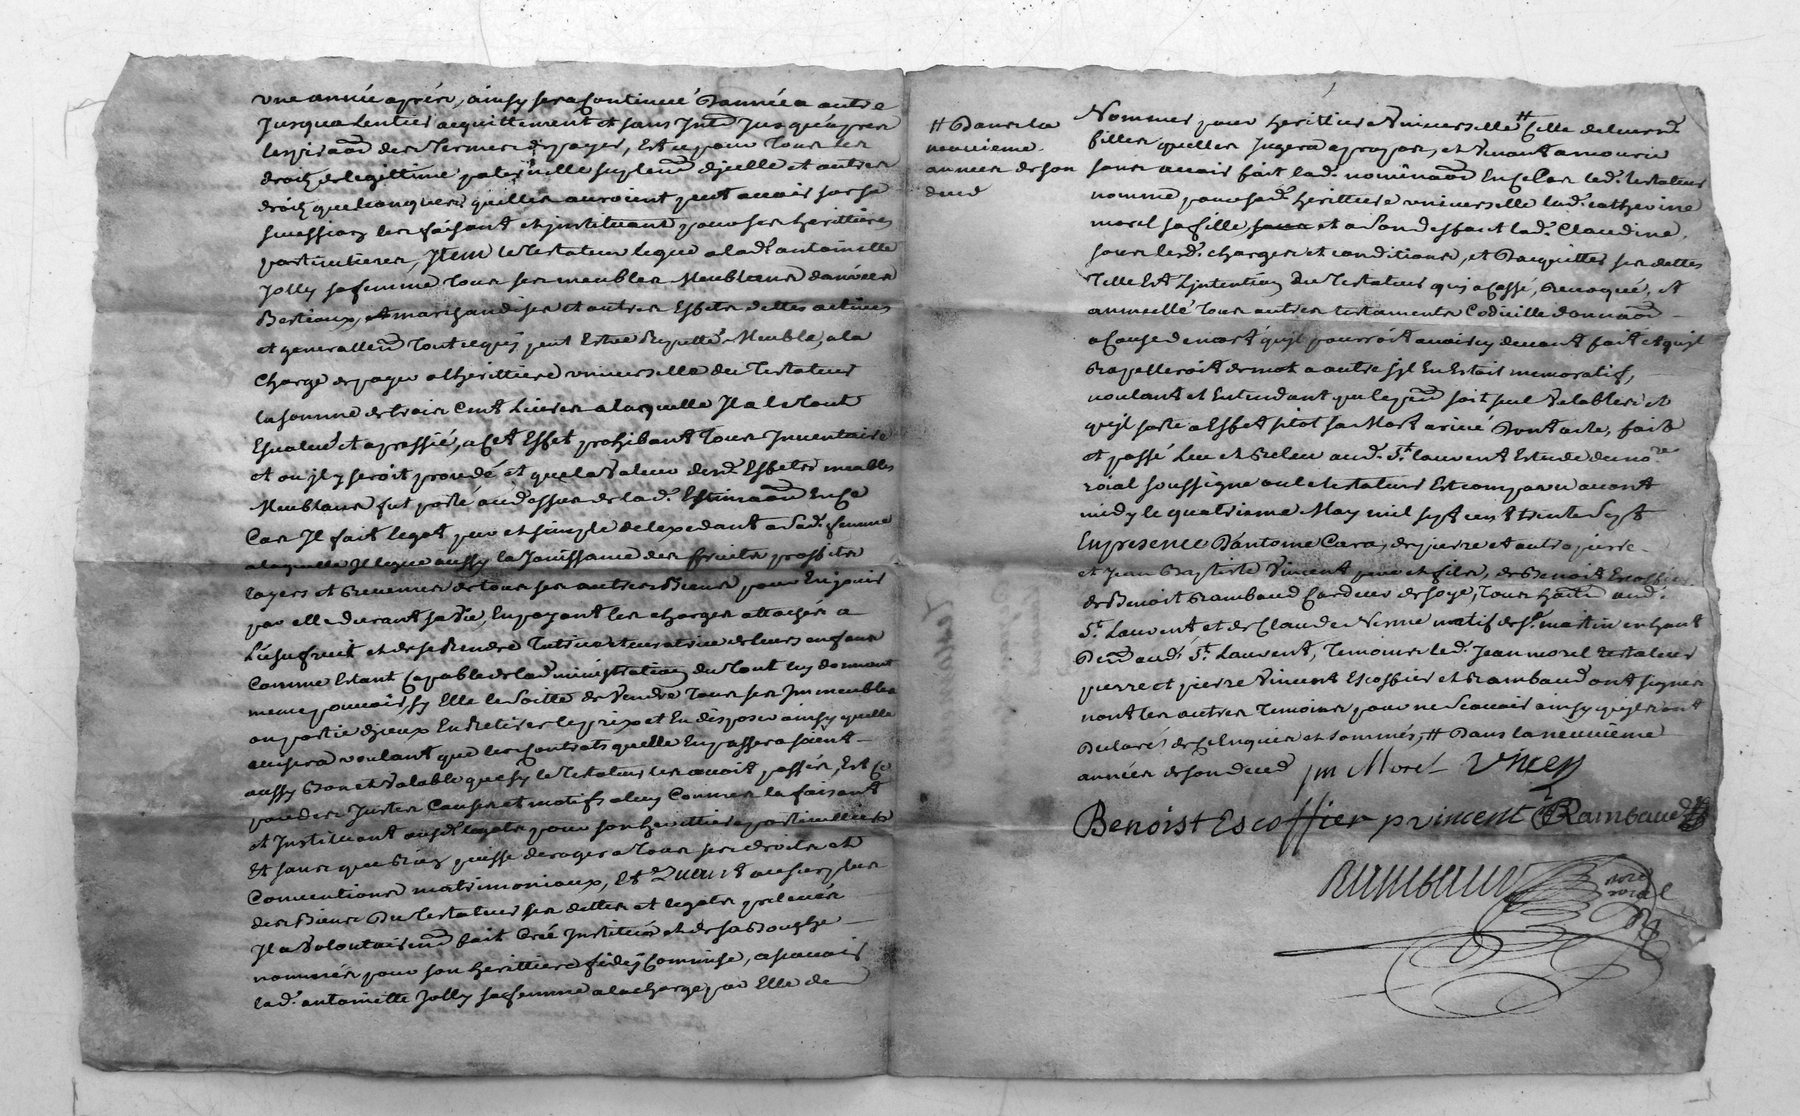 une année après, ainsy sera continué d'année a autre
Jusqua lentier acquittement et sans Intt Jusqu'apres
des termes de payer, Est ce pour tous les
droits de legittime paternelle suplemt d'jcelle et autres
droits quelconques quelles auroient peut avoir sur sa
succession les faisant et jnstituant pour ses herittieres
particulieres, Item le testateur legue a lade antoinette
Jolly sa femme tous ses meubles Meublans danrées
Bestiaux, Marchandises et autres Effets dettes actives
et generallemt tout ce quj peut Estre Reputté Meuble, a la
charge de payer a lherittiere universelle du testateur
la somme de trois Cent Livres a laquelle Il a le tout
Evalué et apressié, a cet Effet prohibant tous Inventaire
et ou jl y seroit procedé et que la valeur desd. Effets meubles
Meublans fut porté au dessus de lad. Estimaon En ce
Cas Il fait legat pur et simple de lexedant a Sad. femme
a laquelle Il legue aussy la Jouissance des fruits proffits
loyers et Revenus de tous ses autres Biens pour En jouir
par elle durant sa vie, En payant les charges attachés a
Lusufruit et de se Rendre tutrice curatrice de leurs enfans
Comme Estant capable de ladministration du tout luy donnant
meme pouvoir, sy Elle le soitte de Vendre tous ses Immeubles
ou partie djceux En Retirer le prix et En disposer ainsy quelle
avisera voulant que les contrats quelle En passera soient
aussy Bon et Valable que sy le testateur les avoit passés, Est ce
pour des Justes Causes et motifs a luy Connus la faisant
et Instituant auxd. legats pour son herittiere particulliere
Et sans que Rien puisse deroger a tous ses droits et
Conventions matrimoniaux, Et Quant au surplus
des Biens Du testateur ses dettes et legats prelevés
Il a Volontairemt fait Créé Jnstitué et de sa Bouche
nommés pour son herittiere fidej Commise, a scavoir
lad. antoinette Jolly sa femme a la charge par Elle de
# Dans la
neuvieme
année de son
deced
Nommer pour herittiere Universelle # Celle de leursd.
filles quelles Jugera apropos, et Venant a mourir
sans avoir fait lad. nominaon En ce Cas led. testateur
nomme pour sad. herittiere universelle lad. catherine
morel sa fille et a son deffaut lad. Claudine,
sous lesd. charges et conditions, et Dacquitter ses dettes
Telle Est Ljntention du testateur quj a Cassé, Revoqué, et
annullé tous autres testaments Codicille donnaon
a Cause de mort qujl pourroit avoir cy devant fait et qujl
Rapelleroit de mot a autre sjl En Estoit memoratif,
voulant et Entendant que le pnt soit seul Valablere et
qujl sorte a Effet sitot sa Mort arrivé Dont acte, fait
et passé Leu et Releu aud. St. Laurent Estude du nore
roial soussigne ou le testateur Est comparu avant
midy le quatrieme May mil sept cent trente sept
En presence D'antoine Cara, de pierre et autre pierre
et Jean Baptiste Vincent pere et fils, de Benoit Escoffier
de Benoit Rambaud Cardeur de soye, tous habts aud.
St. Laurent et de Claude Venne natif de St. martin en haut
Demt aud. St. Laurent, temoins led. Jean morel testateur
pierre et pierre Vincent Escoffier et Rambaud ont signer
non les autres temoins pour ne Scavoir ainsy qujl ront
Declarés de ce Enquis et sommés, # Dans la neuvieme
année de son deced
jm Morel Vincen
Benoist Escoffier p vincent B Rambaud
Rambaud nore
roial